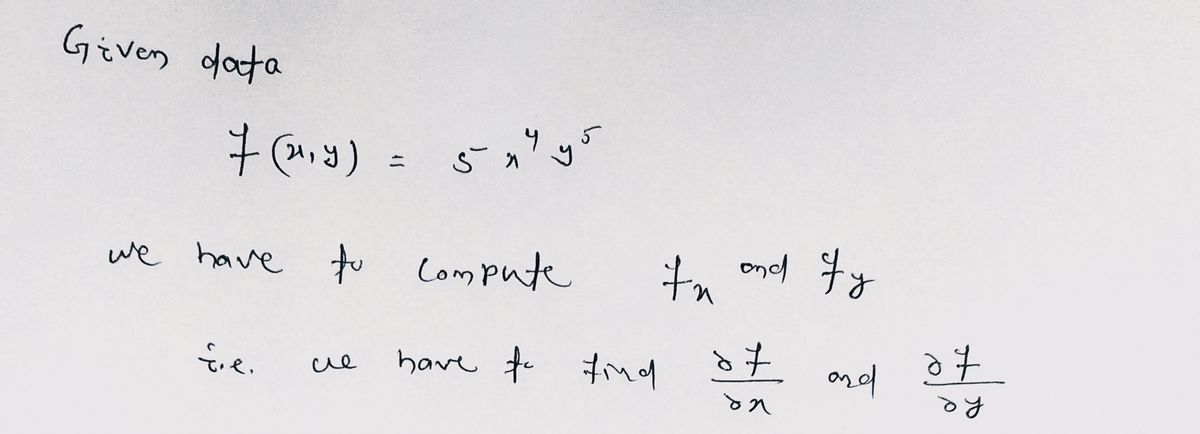 Given data
f(x,y) = 5 x⁴ y⁵
we have to compute fₓ and f_y
i.e. we have to find ∂f/∂x and ∂f/∂y